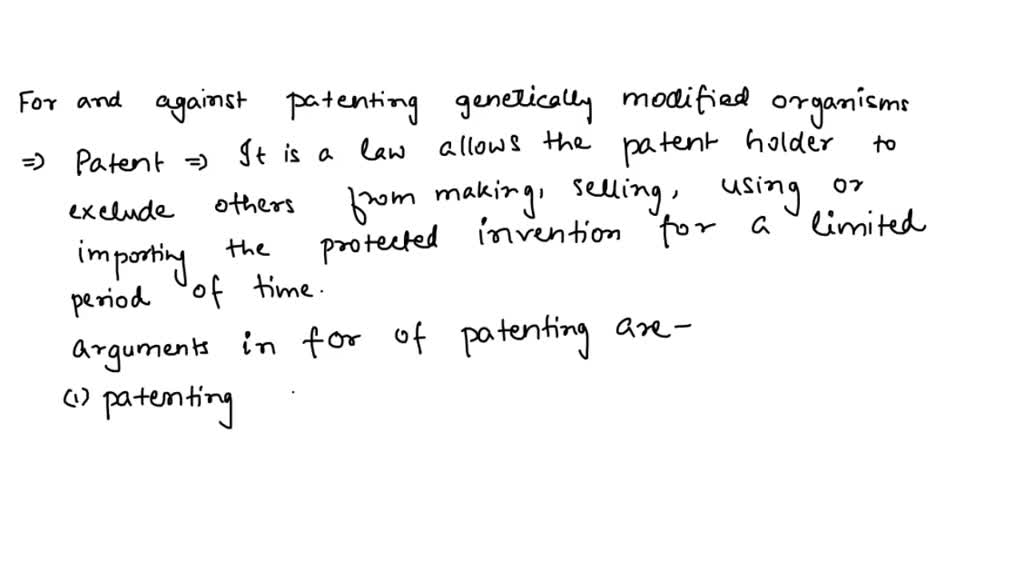 For and against patenting genetically modified organisms
⇒ Patent ⇒ It is a law allows the patent holder to
exclude others from making, selling, using or
importing the protected invention for a limited
period of time.
arguments in for of patenting are-
(1) patenting